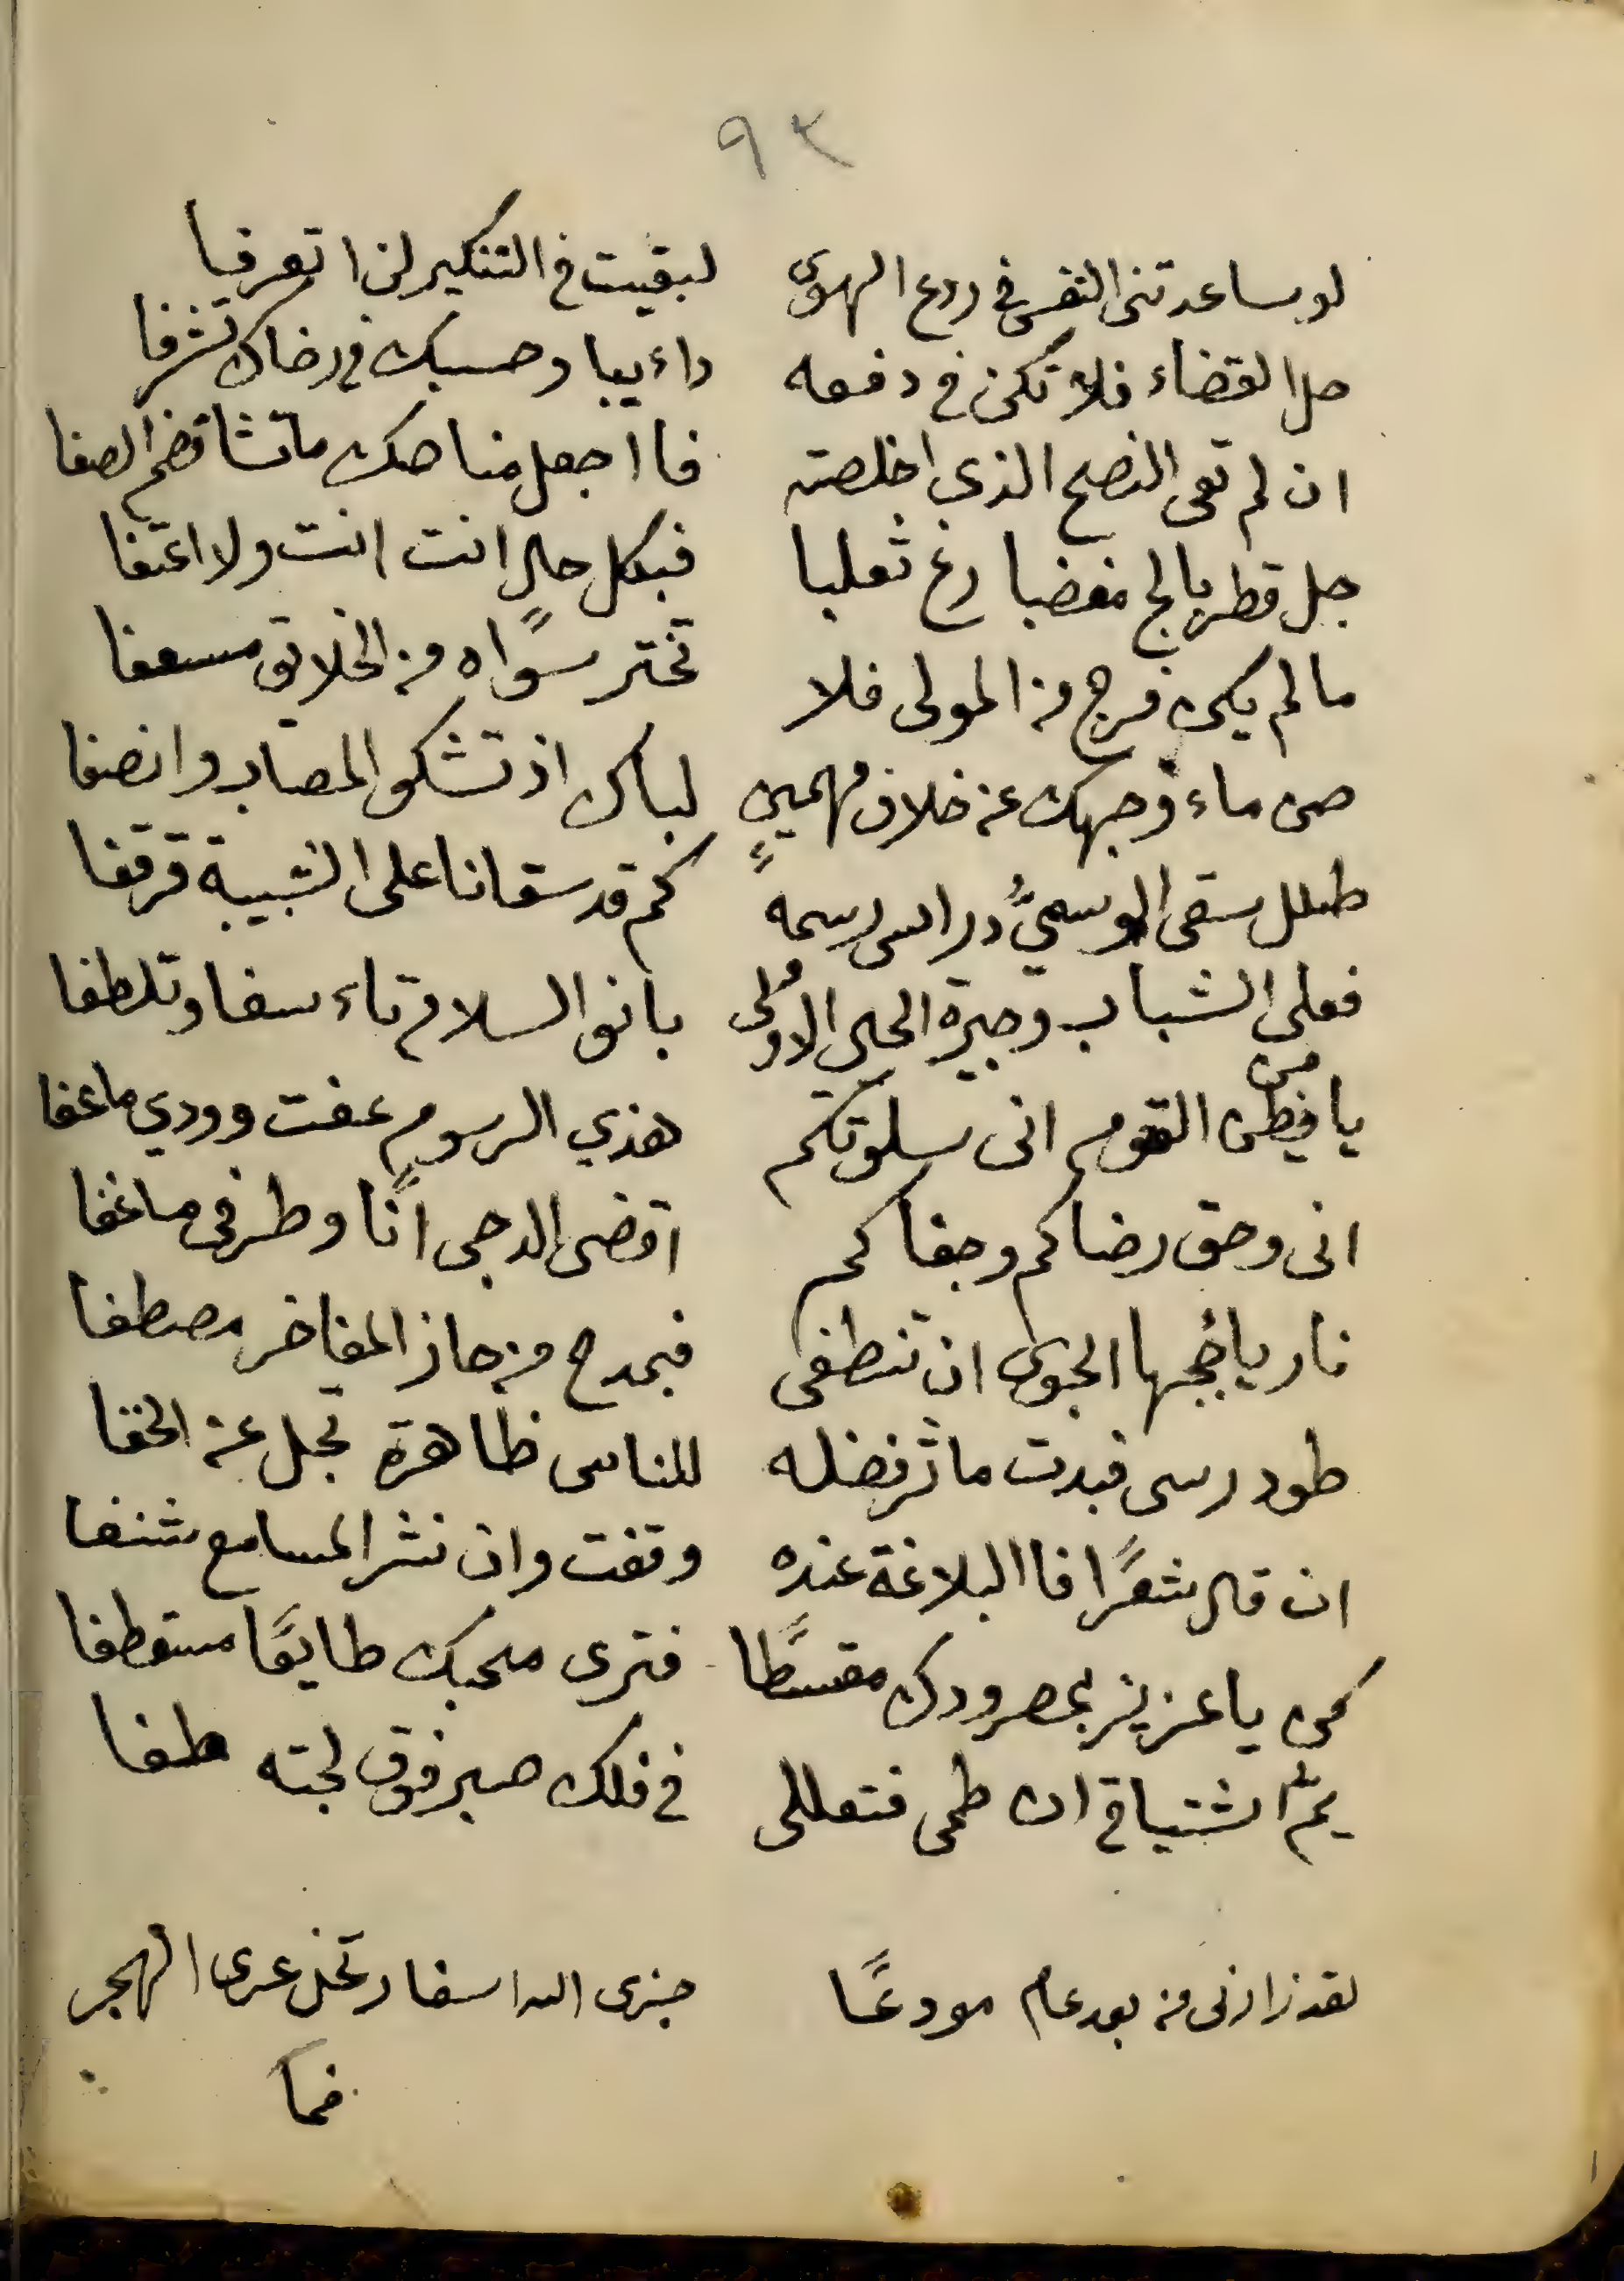 ٩٣
لو ساعدتنى النفس فى ردع الهوى لبقيت فى التنكير لن اتعرفا
حل القضاء فلا تكن فى دفعه داءيبا وحسبك فى رضاك تشرفا
ان لم تعى النصح الذى اخلصته فا اجعل مناصك ماتشا قضم الصفا
جل قطر بالج مغضبا رغ ثعلبا فبكل حال انت انت ولا اعتفا
مالم يكن فرج من المولى فلا تختر سواه من الخلائق مسعفا
صن ماء وجهك عن خلاف مهمين لباك اذ تشكو المصاب وانصفا
طلل سقى الوسميُّ دراس رسمه كم قد سقانا على الشبيبة قرقفا
فعلى الشباب وجيرة الحى الاولى بانو السلام تاءسفا وتلطفا
يا فيض القوم انى سلوتكم هذي الرسوم عفت وودي ماعفا
من
انى وحق رضاكم وجفاكم اقضى الدجى انًا وطرفى ماغفا
نار ياججها الجوى ان تنطفى فبمدح من حاز المفاخر مصطفا
طود رسى فبدت ماثر فضله للناس ظاهرة تجل عن الخفا
ان قال شعرًا فا البلاغة عنده وقفت وان نثر المسامع شنفا
كن يا عزيز بمصر ودك مقسطًا فترى محبك طايعًا مستعطفا
يمُّ اشتياقى ان طمى فتعللى فى فلك صبر فوق لجته طفا
لقد زارنى من بعد عام مودعًا جزى الله اسفار تحل عرى الهجر
فما